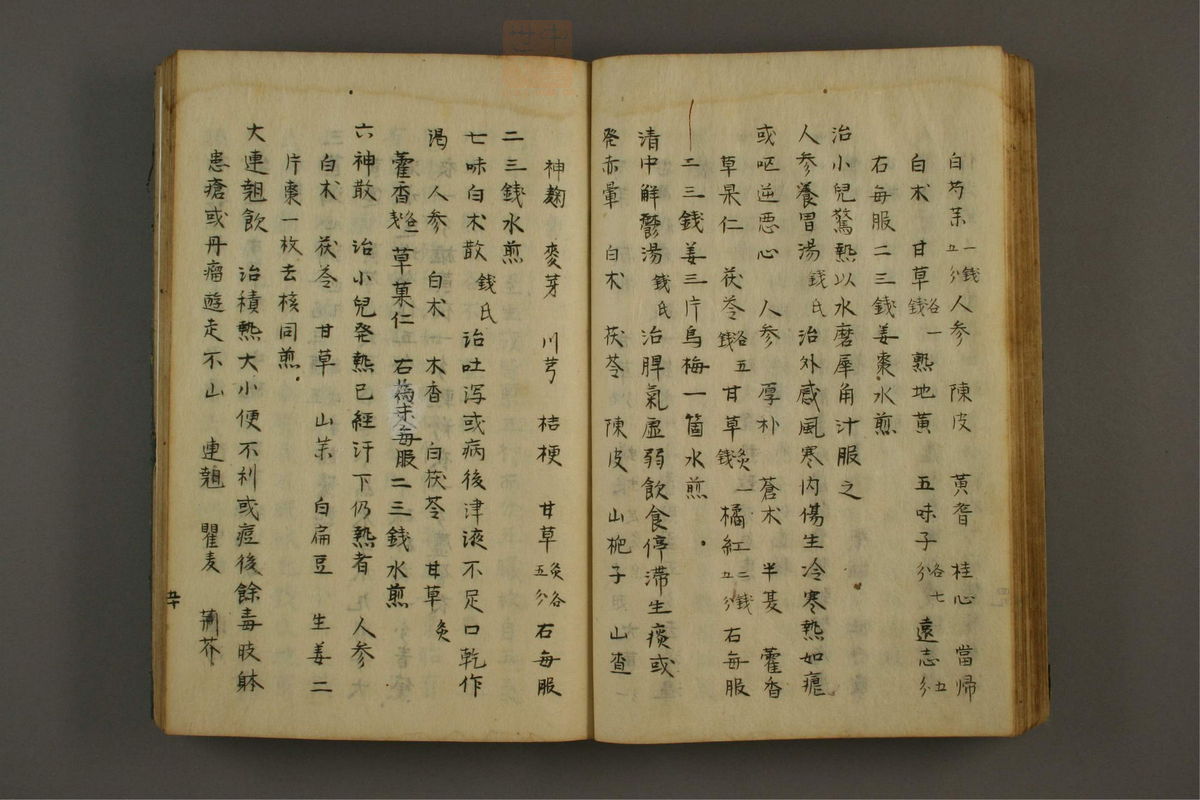 白芍薬一錢五分人参 陳皮 黄耆 桂心 當帰
白朮 甘草各一錢 熟地黄 五味子各七分 遠志五分
右毎服二三錢姜棗水煎
治小兒驚熱以水磨犀角汁服之
人参養胃湯錢氏 治外感風寒内傷生冷寒熱如瘧
或呕逆悪心 人参 厚朴 蒼朮 半夏 藿香
草果仁 茯苓各五錢 甘草炙一錢 橘紅二錢五分右毎服
二三錢姜三片烏梅一箇水煎
清中解鬱湯錢氏 治脾氣虚弱飲食停滞生痰或
発赤暈 白朮 茯苓 陳皮 山栀子 山査
神麹 麥芽 川芎 桔梗 甘草炙各五分 右毎服
二三錢水煎
七味白朮散錢氏 治吐泻或病後津液不足口乾作
渇 人参 白朮 木香 白茯苓 甘草炙
藿香各一錢 草菓仁 右為末毎服二三錢水煎
六神散 治小兒発熱已經汗下仍熱者 人参
白朮 茯苓 甘草 山薬 白扁豆 生姜二
片棗一枚去核同煎
大連翹飲 治積熱大小便不利或痘後餘毒肢躰
患瘡或丹瘤遊走不山 連翹 瞿麦 荊芥